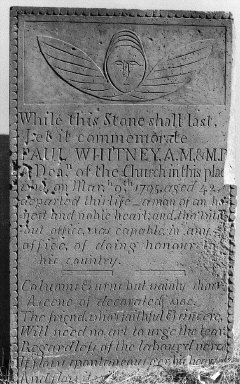 While this Stone shall last.
Let it commemorate
PAUL WHITNEY, A.M. & M.D
a Deaⁿ. of the Church in this plac
who on Mar. 9th 1795, aged 42
departed this life a man of an ho
nest and noble heart; and, tho' with
out office, was capable, in any
office, of doing honour to
his country.
but vainly
A scene of decorated woe.
The friend, who's faithful & sincere,
Will need no art to urge the tear
Regardless of the labour'd verse